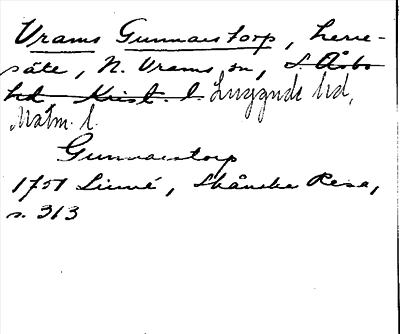 Vrams Gunnarstorp, herre-
säte, N. Vrams sn, S. Åsbo
hd Krist. l. Luggude hd,
Malm. l.
Gunnarstorp
1751 Linné, Skånska Resa,
s. 313